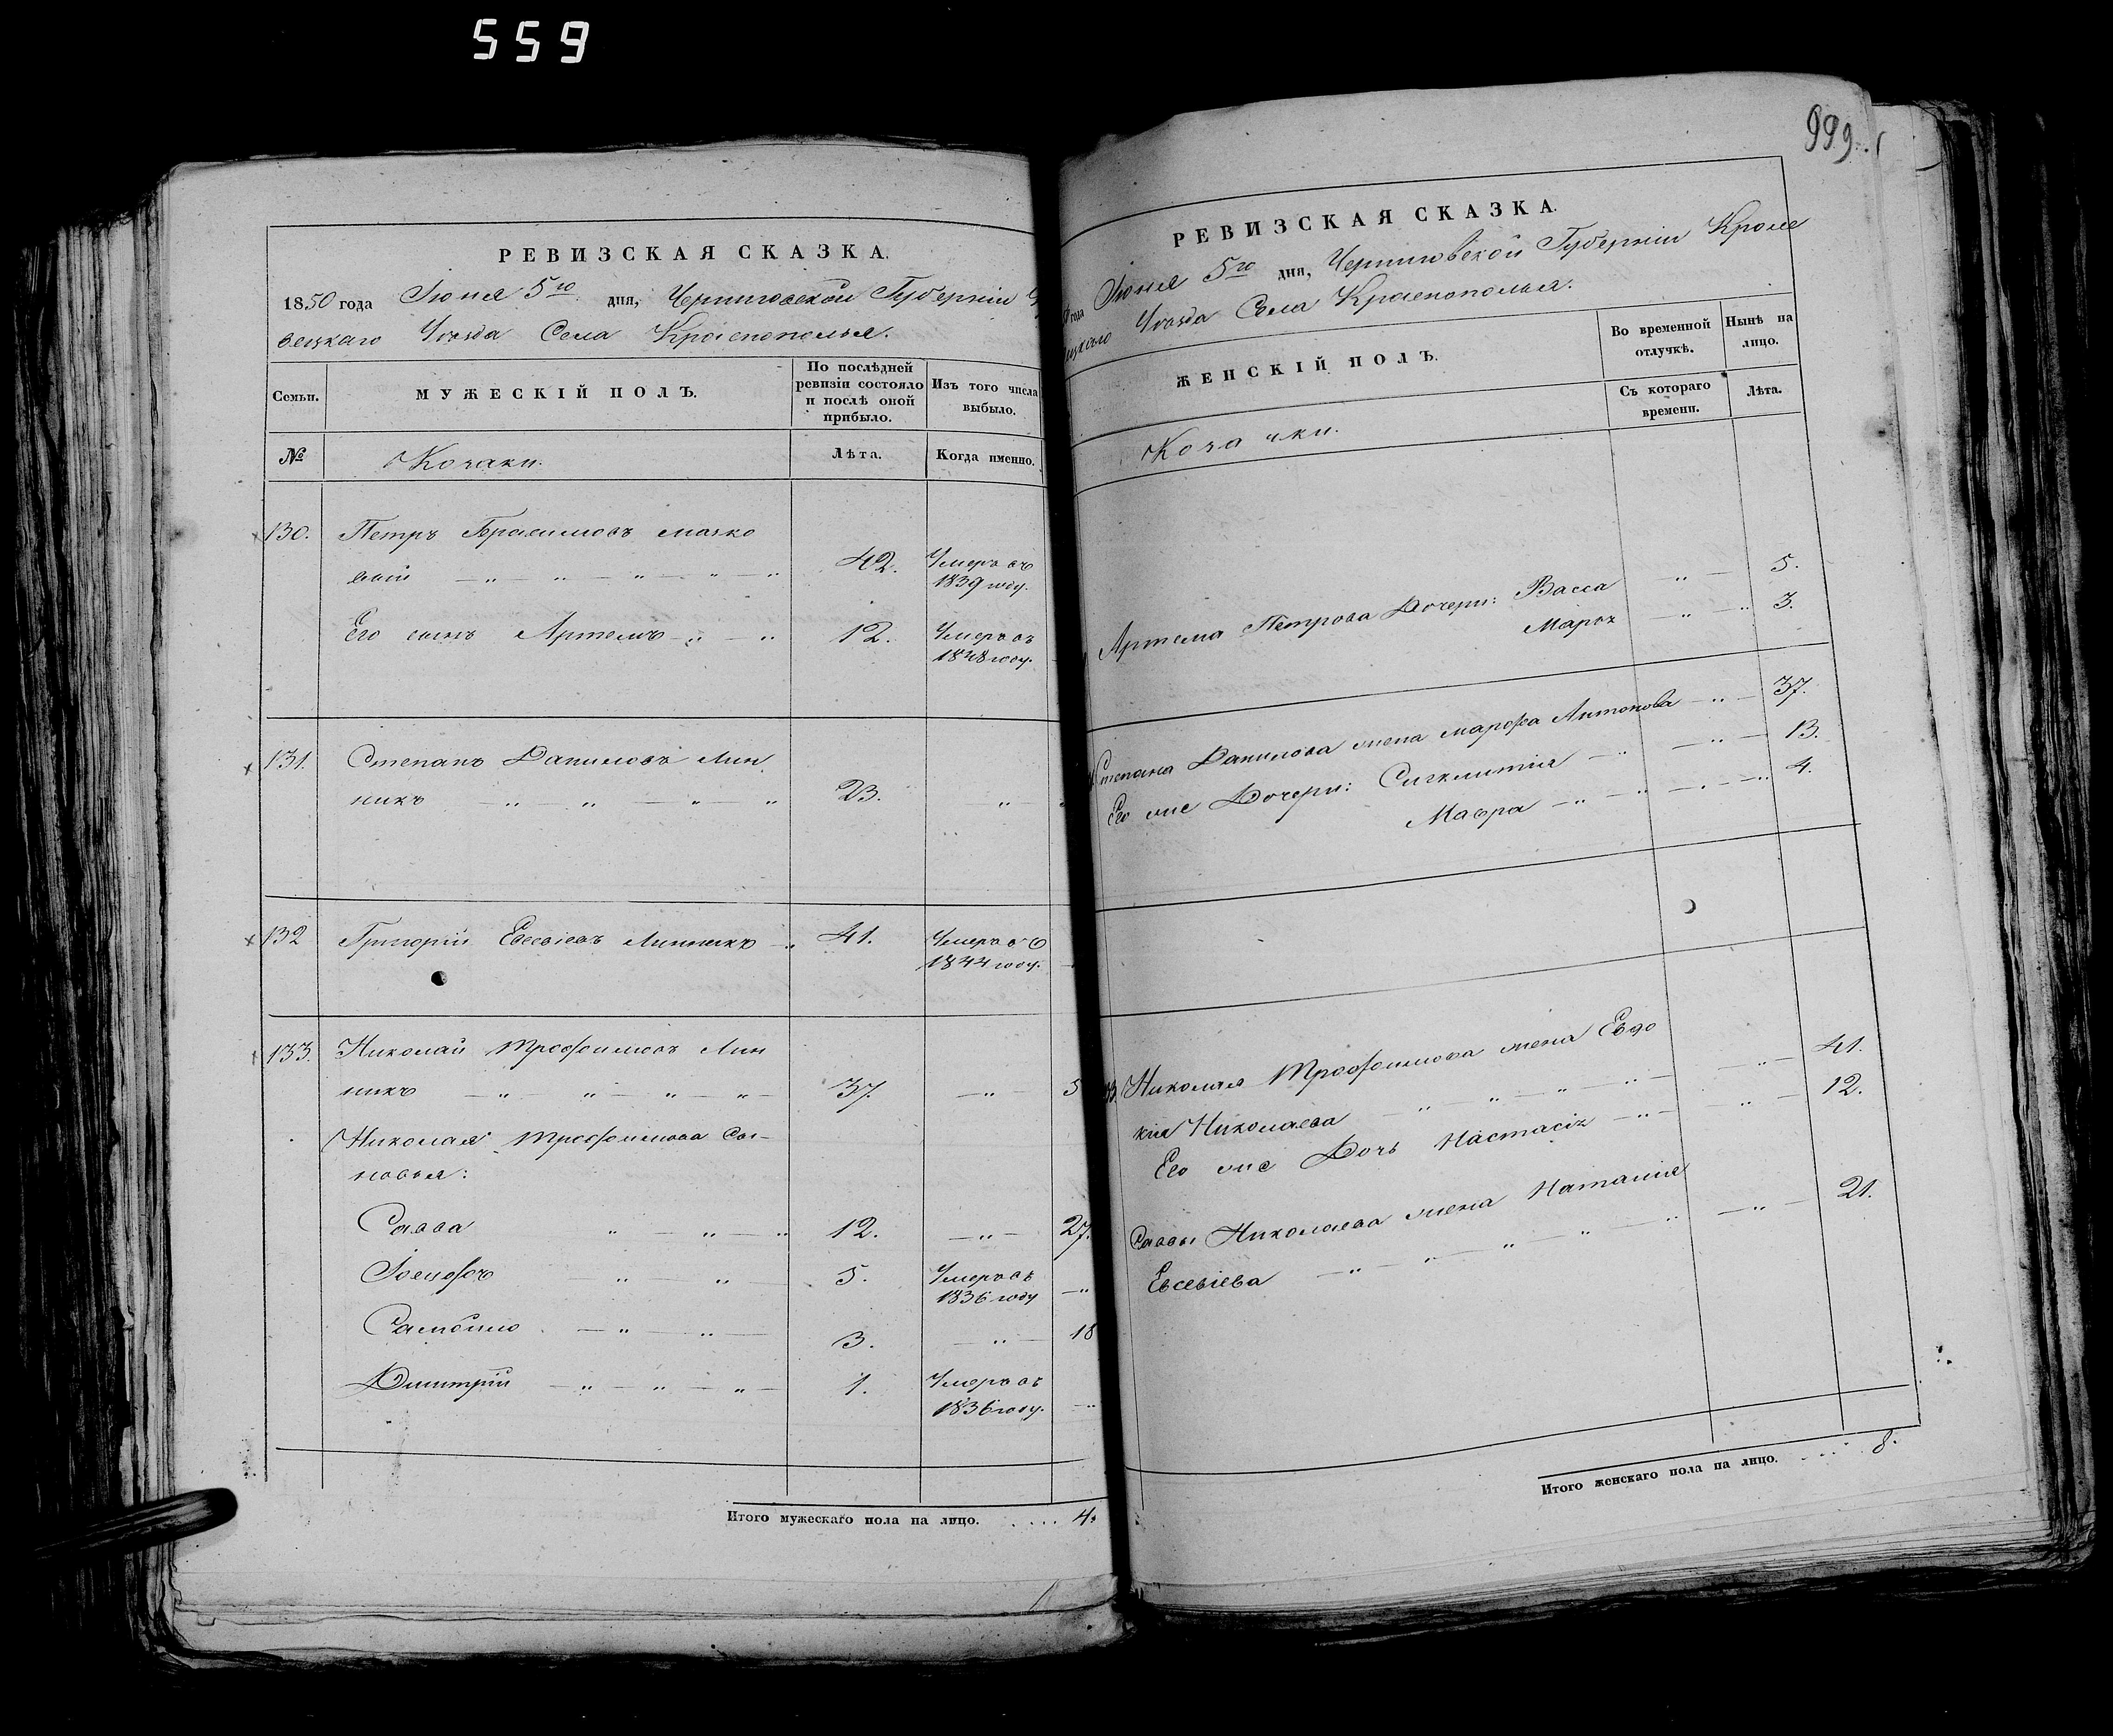 559
999.
РЕВИЗСКАЯ СКАЗКА.
1850 года Іюня 5го дня, Черниговской Губерніи
вецкаго Уѣзда Села Краснополья.
Семьи.
МУЖЕСКІЙ ПОЛЪ.
По послѣдней ревизіи состояло и послѣ оной прибыло.
Изъ того числа выбыло.
№
Козаки.
Лѣта.
Когда именно.
130. Петръ Герасимовъ
42. Умеръ въ
1839 году.
Его сынъ Артемъ 12. Умеръ въ
1848 году.
131. Степанъ Даниловъ Лин
никъ 23.
132 Григорій Евсевіевъ Линникъ 41. Умеръ въ
1844 году.
133. Николай Трофимовъ Лин
никъ 37. 5
Николая Трофимова Сы-
новья:
Савва 12. 27.
Іосифъ 5. Умеръ въ
1836 году
3. 18
Дмитрій 1. Умеръ въ
1836 году.
Итого мужескаго пола на лицо. . . . . 4.
РЕВИЗСКАЯ СКАЗКА.
года Іюня 5го дня, Черниговской Губерніи Кроле
вецкаго Уѣзда Села Краснополья.
ЖЕНСКІЙ ПОЛЪ.
Во временной отлучкѣ.
Нынѣ на лицо.
Съ котораго времени.
Лѣта.
Козачки.
Артема Петрова Дочери: Васса 5.
3.
Степана Данилова жена Марфа Антонова 37.
Его же Дочери: Сигклитія 13.
Мавра 4.
Николая Трофимова жена Евдо
кія Николаева 41.
Его же Дочь Настасія 12.
Саввы Николаева жена Наталія
Евсевіева 21.
Итого женскаго пола на лицо. . . . . 8.